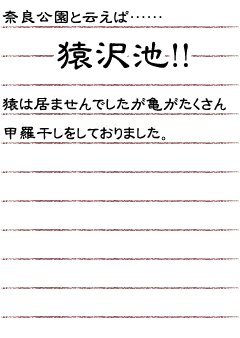 奈良公園と云えば……
猿沢池!!
猿は居ませんでしたが亀がたくさん
甲羅干しをしておりました。